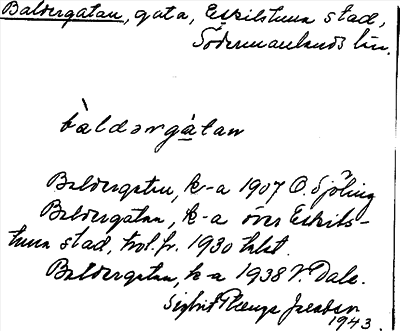 Baldergatan, gata, Eskilstuna stad,
Södermanlands län.
bàldərgàtan
Baldergatan, k-a 1907 O. Sjöling
Baldergatan, k-a över Eskils-
tuna stad, trol. fr. 1930 talet.
Baldergatan, k-a 1938 V. Dale.
Sigbrit Plænge Jacobson
1943.